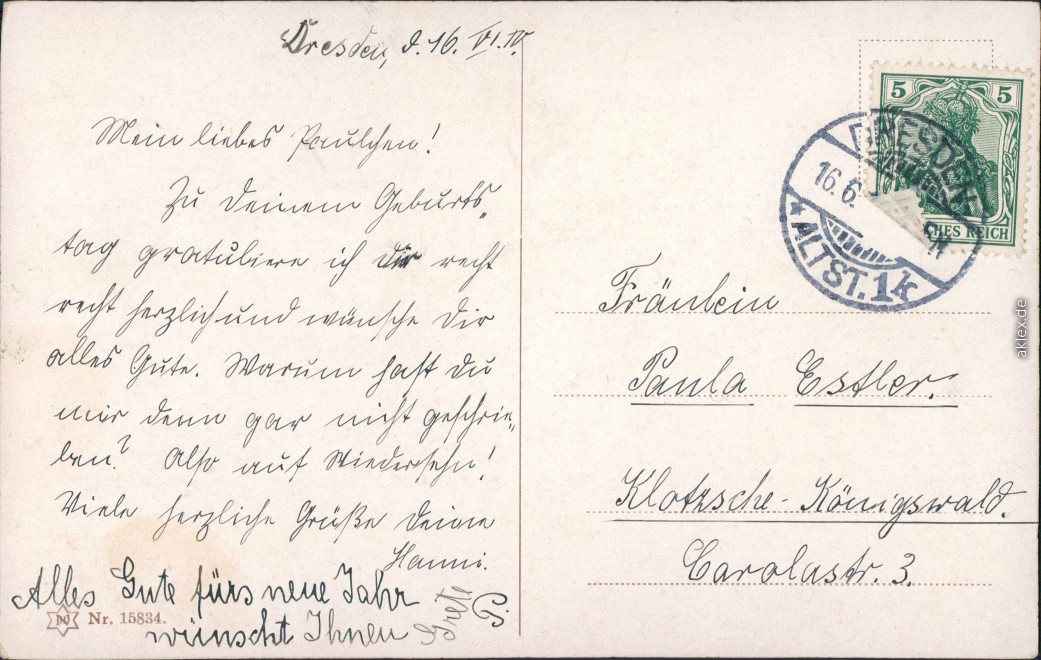 Dresden, d. 16. VI. IV.
Mein liebes Paulchen!
Zu Deinem Geburts„
tag gratuliere ich Dir recht
recht herzlich und wünsche Dir
alles Gute. Warum hast Du
mir denn gar nicht geschrie„
ben? Also auf Wiedersehn!
Viele herzliche Grüße Deine
Hanni.
Alles Gute fürs neue Jahr
wünscht Ihnen Grete P.
Nr. 15834.
5 5
DRESDEN
16.6.
* ALTST. 1k
CHES REICH
Fräulein
Paula Estler.
Klotzsche-Königswald.
Carolastr. 3.
aklex.de